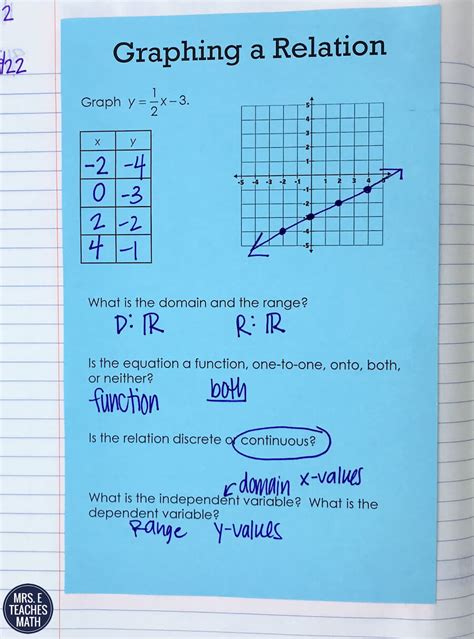 2
Graphing a Relation
Graph y = 1/2 x – 3.
x y
-2 -4
0 -3
2 -2
4 -1
5
4
3
2
1
-5 -4 -3 -2 -1 1 2 3 4 5
-1
-2
-3
-4
-5
What is the domain and the range?
D: ℝ R: ℝ
Is the equation a function, one-to-one, onto, both,
or neither?
function both
Is the relation discrete or continuous?
domain x-values
What is the independent variable? What is the
dependent variable?
Range y-values
MRS. E
TEACHES
MATH